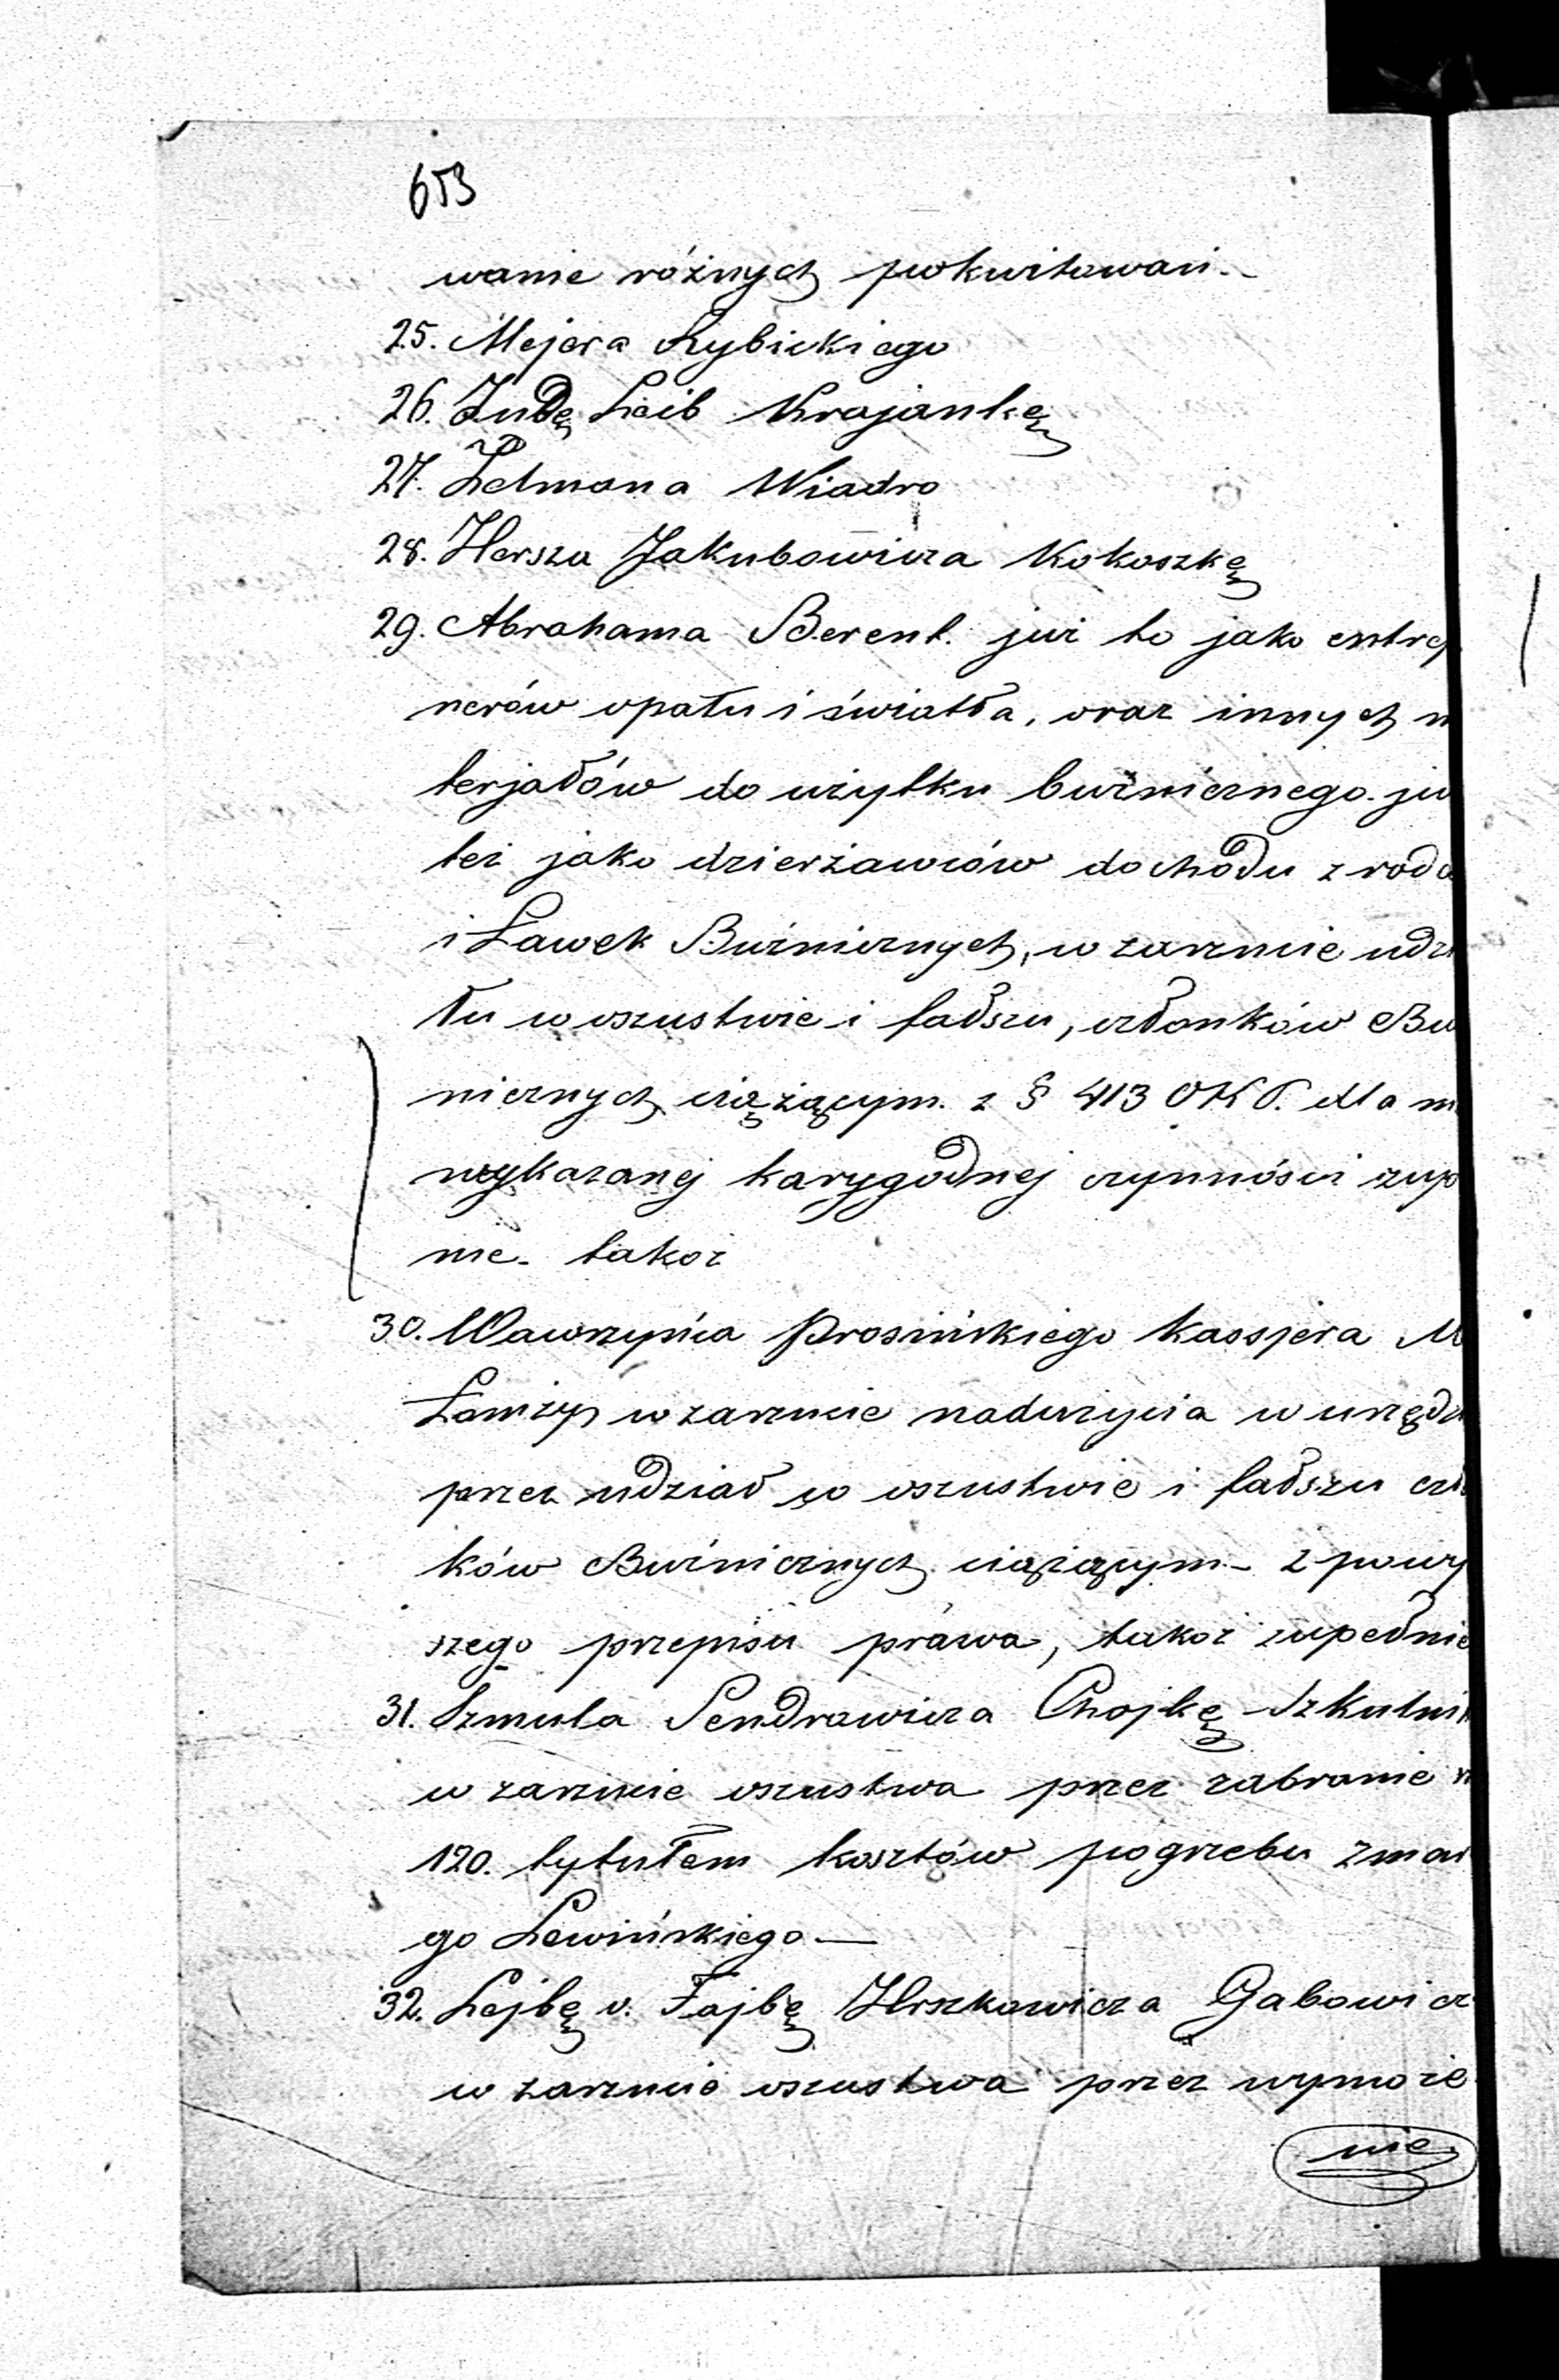 653
wanie różnych pokwitowań.-
25. Mejera Rybickiego
26. Judę Leib Krajankę
27. Zelmana Wiadro
28. Hersza Jakubowicza Kokoszkę
29. Abrahama Berent. już to jako entrep
nerów opału i światła, oraz innych m
terjałów do użytku bużnicznego. ju
też jako dzierżawców dochodu z roda
i Ławek Bużnicznych, w zarzucie udzi
łu w oszustwie i fałszu, członków Bu
nicznych ciążącym. z § 413 OKP. dla ni
wykazanej karygodnej czynności zup
nie. takoż
30. Wawrzyńca Prosińskiego Kassjera M
Łomży w zarzucie nadużycia w urzędz
przez udział w oszustwie i fałszu czł
ków Bużnicznych ciążącym - z powy
szego przepisu prawa, takoż zupełnie
31. Szmula Sendrowicza Chojkę - Szkulni
w zarzucie oszustwa przez zabranie r
120. tytułem kosztów pogrzebu zmar
go Lewińskiego —
32. Lejbę v. Fajbę Hrszkowicza Gabowicz
w zarzucie oszustwa przez wymoże
nie